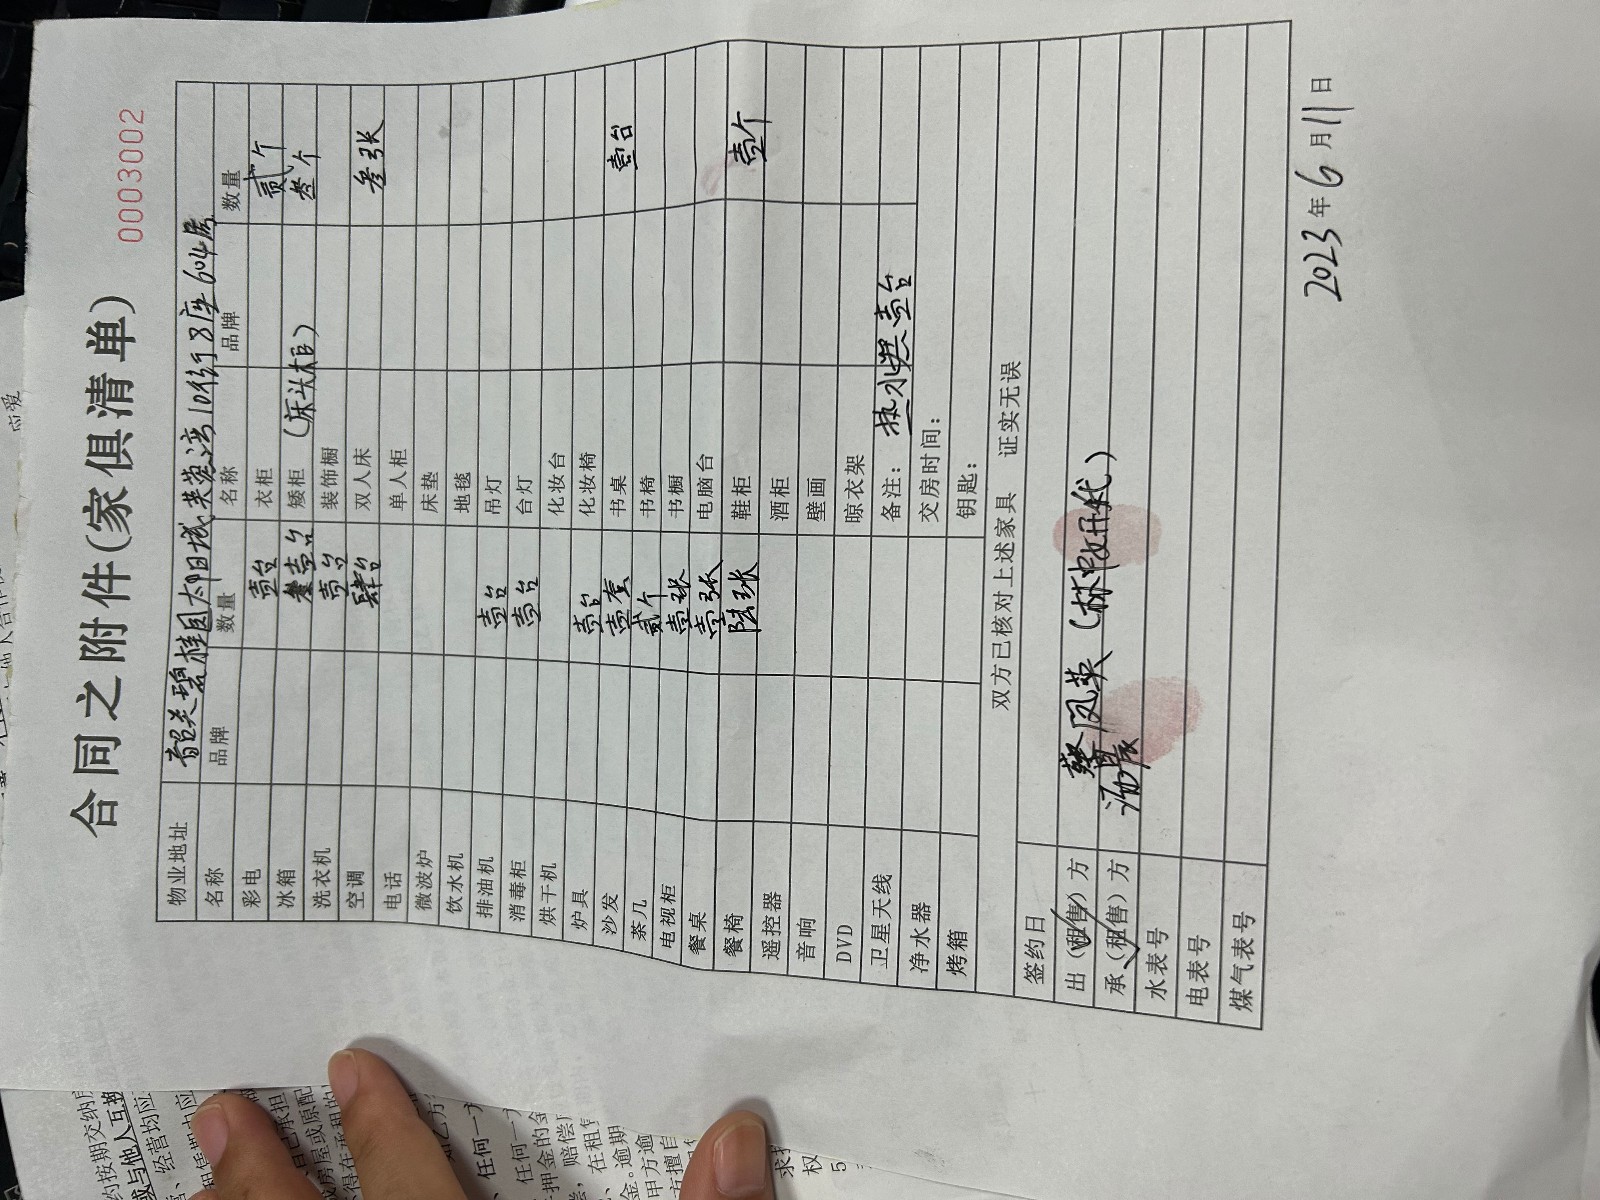 合同之附件(家俱清单)
0003002
物业地址 韶关碧桂园太阳城芙蓉湾10街8座604房
名称 品牌 数量 名称 品牌 数量
彩电 壹台 衣柜 贰个
冰箱 壹台 矮柜 (床头柜) 叁个
洗衣机 壹台 装饰橱
空调 肆台 双人床 叁张
电话 单人柜
微波炉 床垫
饮水机 地毯
排油机 壹台 吊灯
消毒柜 壹台 台灯
烘干机 化妆台
炉具 壹台 化妆椅
沙发 壹套 书桌 壹台
茶几 贰个 书椅
电视柜 壹张 书橱
餐桌 壹张 电脑台
餐椅 陆张 鞋柜 壹个
遥控器 酒柜
音响 壁画
DVD 晾衣架
卫星天线 备注: 热水器壹台
净水器 交房时间:
烤箱 钥匙:
双方已核对上述家具 证实无误
签约日
出(租售)方 蔡凤英(林 代)
承(租售)方 汤晨
水表号
电表号
煤气表号
2023年6月11日
约按期交纳
或与他人互换
任何一
押金的金
赔偿